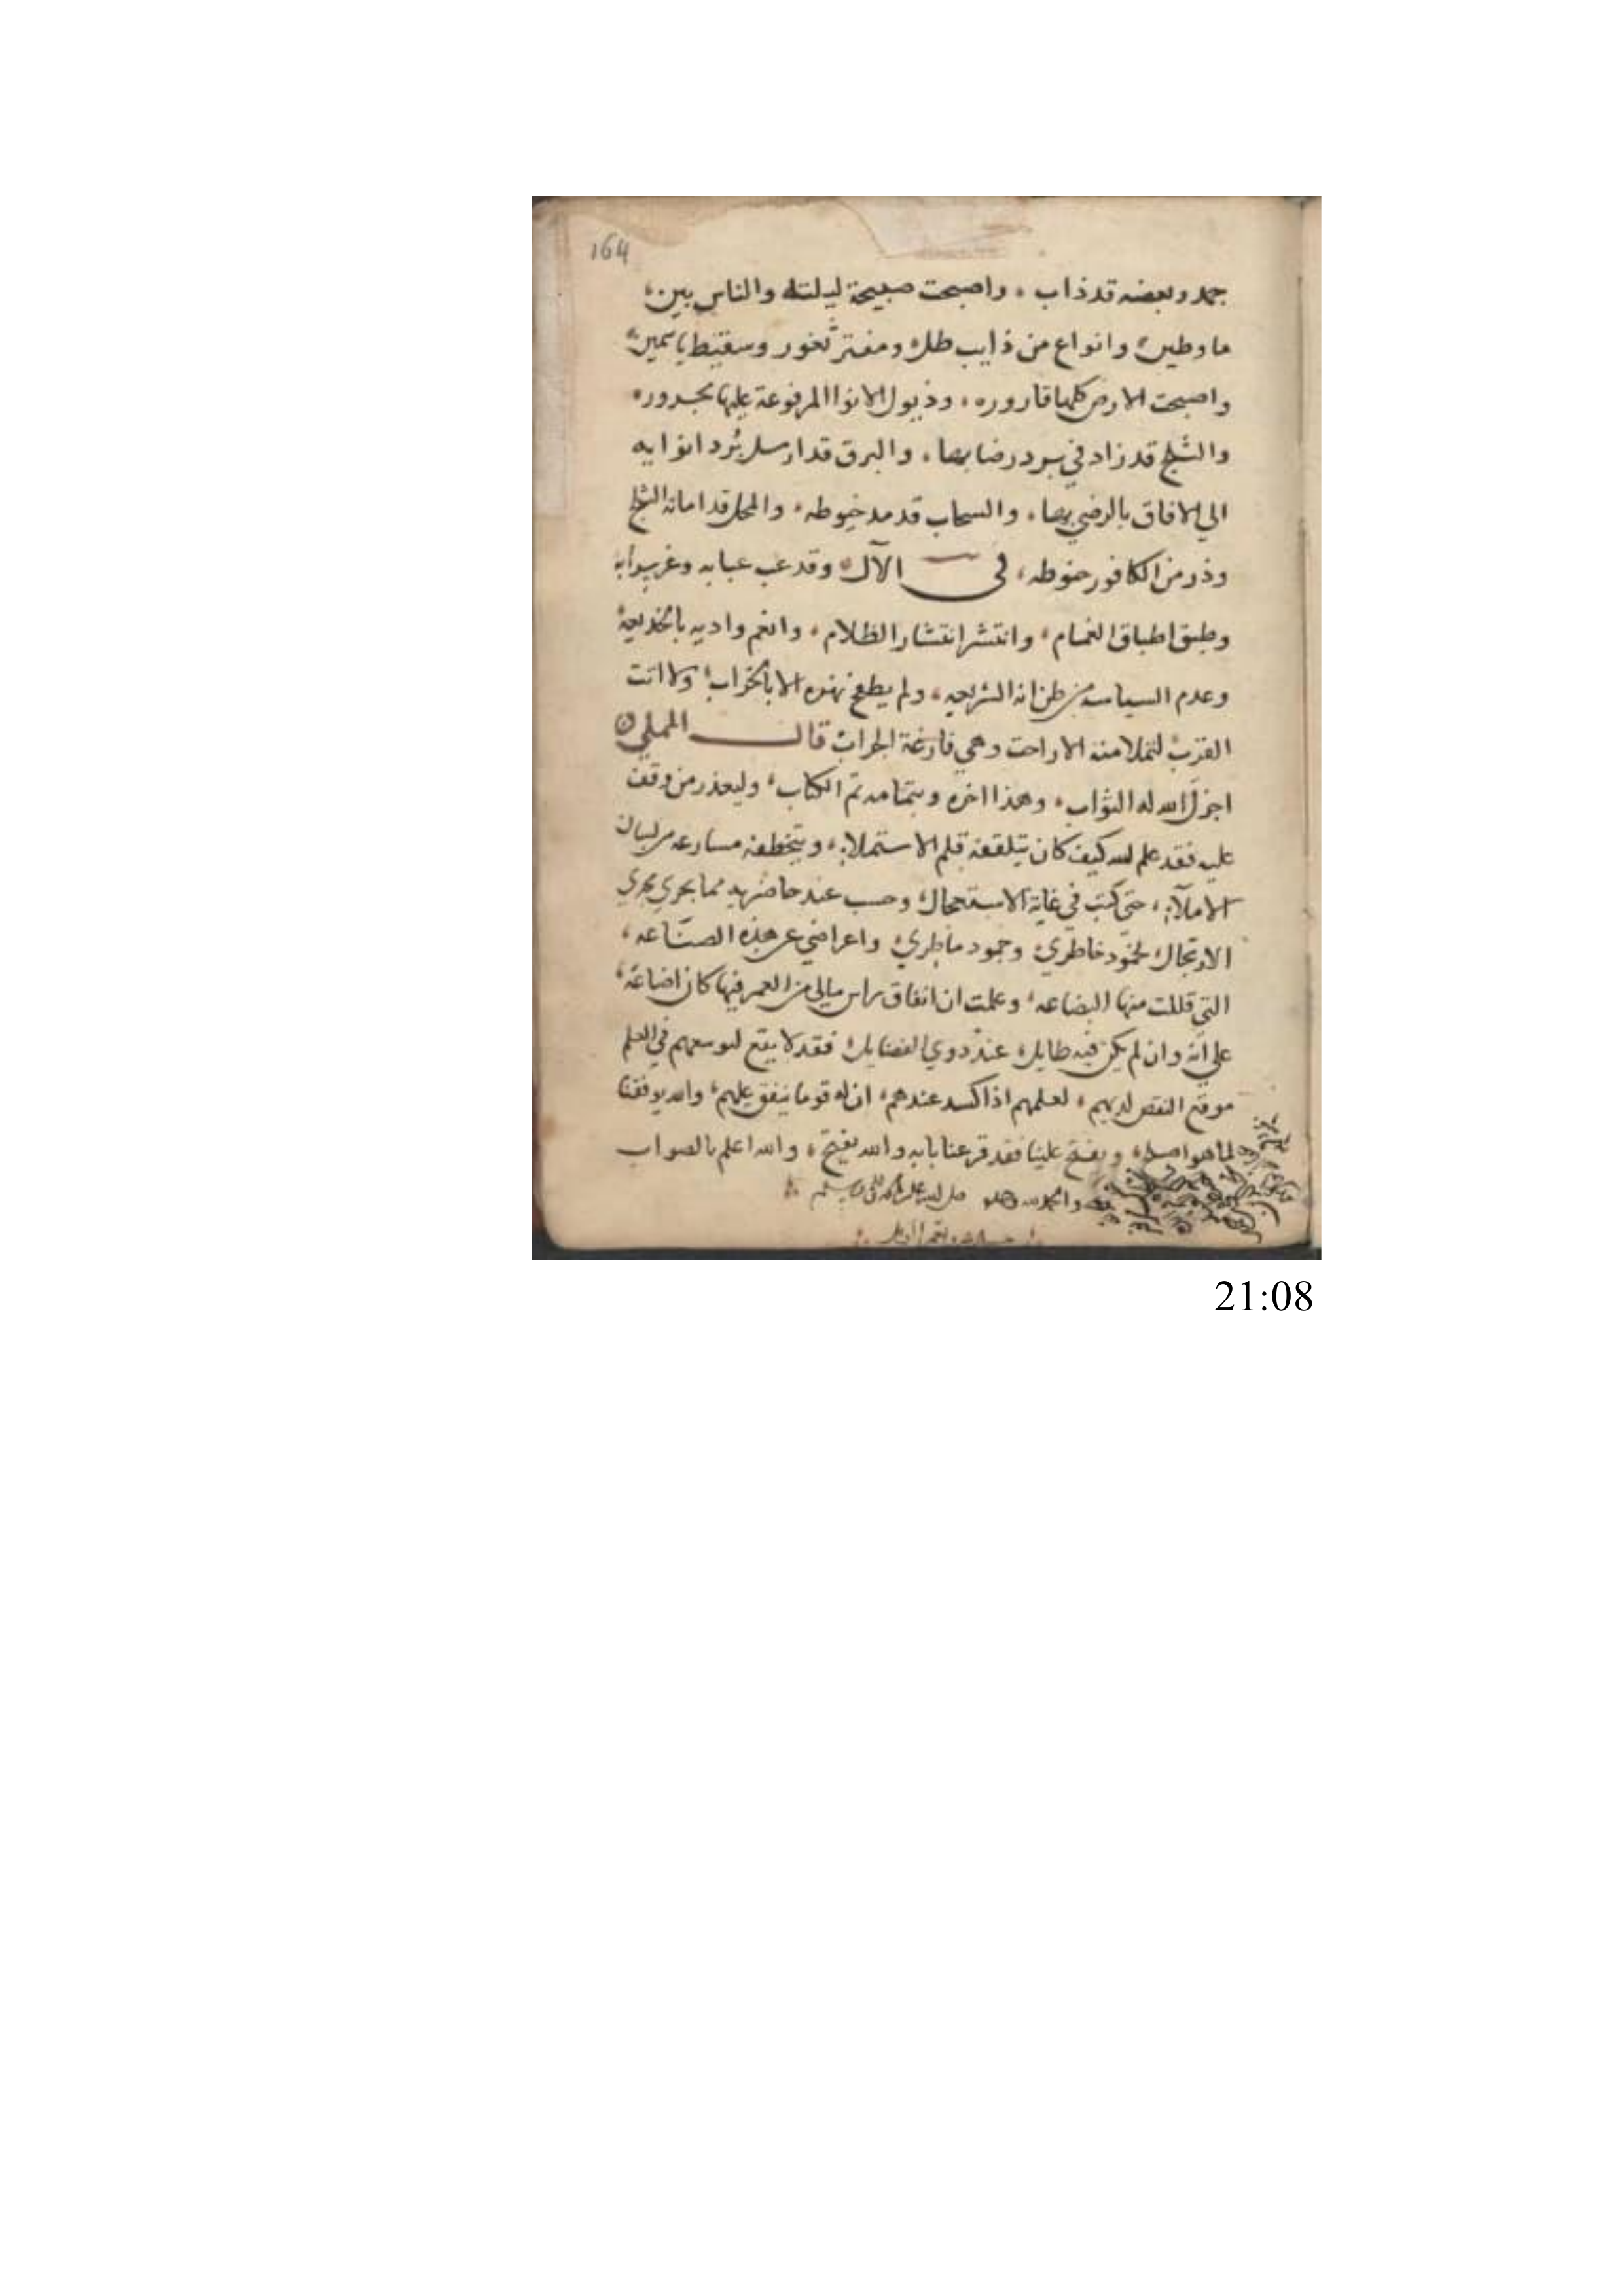 164
جمد وبعضه قد ذاب، واصبحت صبيحة ليلته والناس بين،
ما وطين، وانواع من ذايب طل ومفتر ثغور وسقيط ياسمين
واصبحت الارض كلها قاروره، وذيول الانوا المرفوعة عليها مجروره
والثلج قد زاد في برد رضابها، والبرق قد ارسل بُرد انوابه
الي الافاق بالرضي بها، والسحاب قد مد خيوطه، والمحل قد اماته الثلج
وذر من الكافور حنوطه، في الآل وقد عب عبابه وغر سرابه
وطبق اطباق الغمام، وانتشر انتشار الظلام، وانعم واديه بالخديعة
وعدم السياسه من ظن انه الشريعه، ولم يطفح نهره الا بالخراب، ولا اتت
القرب لتملا منه الا راحت وهي فارغة الجراب قال المملي
اجزل الله له الثواب، وهذا اخره وبتمامه تم الكتاب، وليعذر من وقف
عليه فقد علم الله كيف كان يتلقفه قلم الاستملاء، ويتخطفه مسارعه من لسان
الاملآء، حتي كتب في غاية الاستعجال، وحسب عند حاضريه مما يجري مجري
الارتجال، لخمود خاطري، وجمود ماطري، واعراضي عن هذه الصناعه،
التي قللت منها البضاعه، وعلمت ان انفاق راس مالي من العمر فيها كان اضاعة،
علي انه وان لم يكن فيه طايل، عند ذوي الفضايل، فقد لا يقع لتوسعهم في العلم
موقع النقص لديهم، لعلمهم اذا كسد عندهم، ان له قوما ينفق عليهم، والله يوفقنا
لما هو اصلح، ويفتح علينا فقد قرعنا بابه والله يفتح، والله اعلم بالصواب
والحمد لله وحده
ونعم الوكيل
21:08